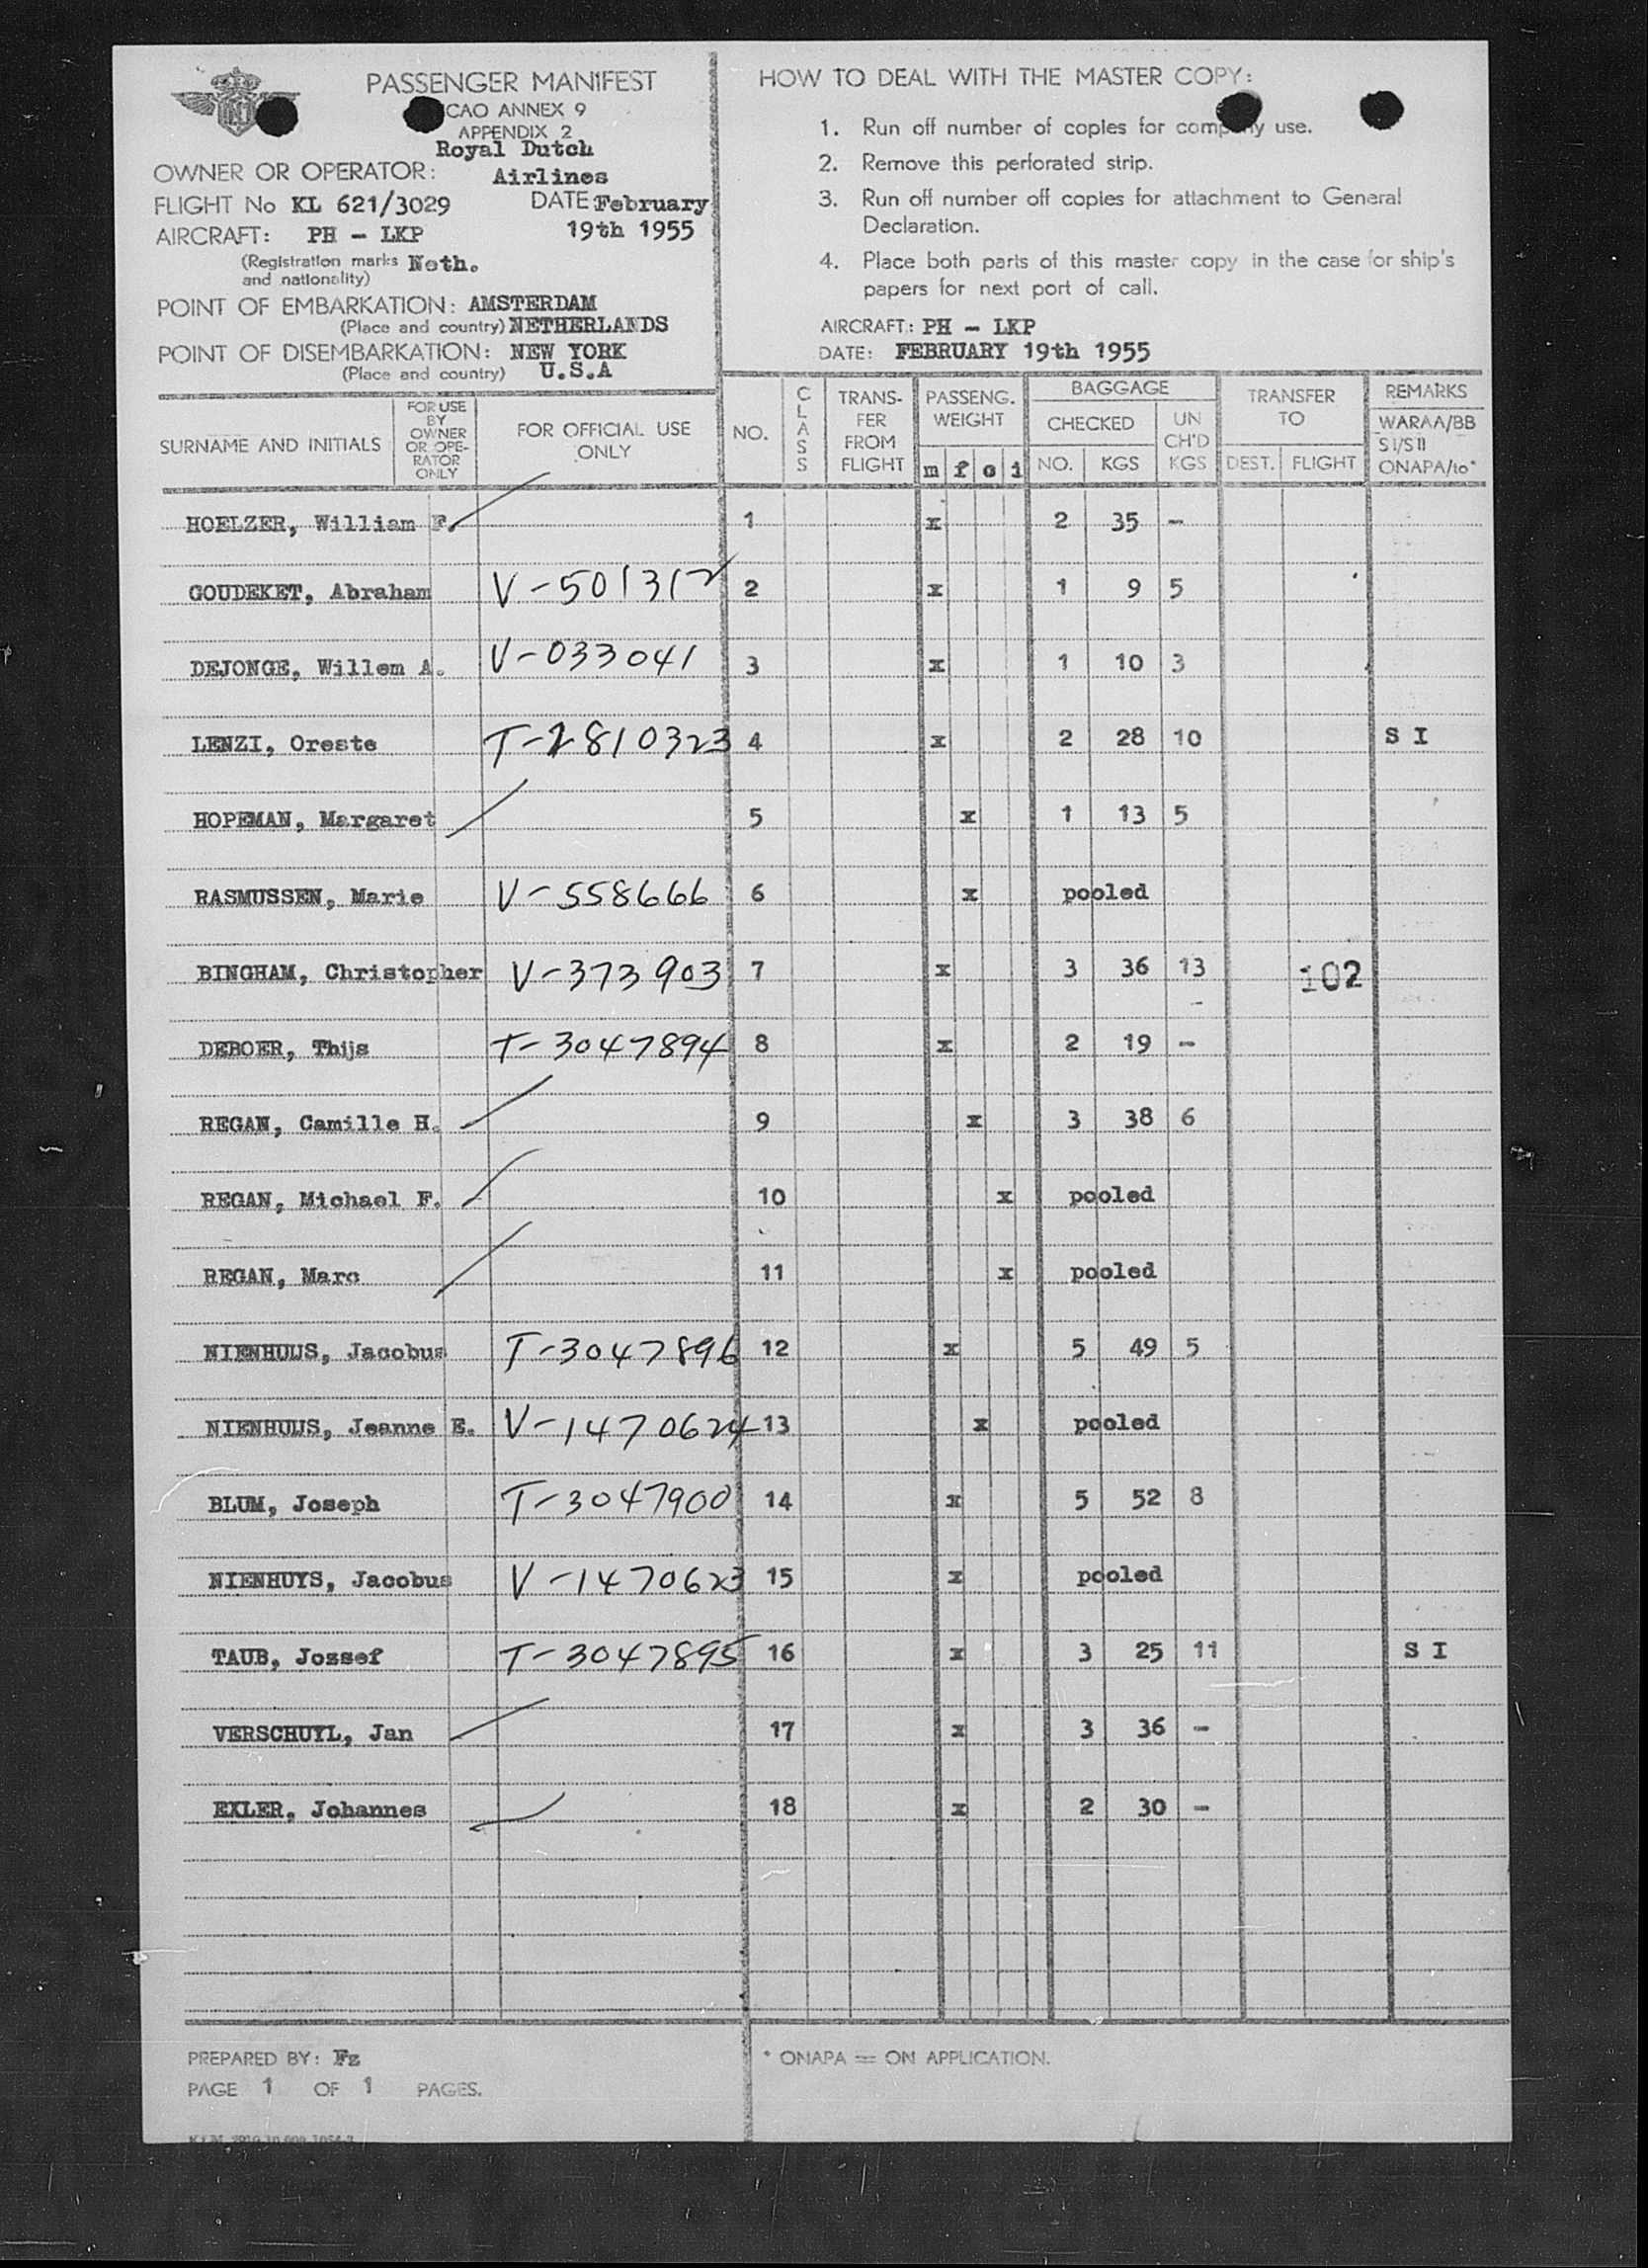 PASSENGER MANIFEST
CAO ANNEX 9
APPENDIX 2
OWNER OR OPERATOR: Royal Dutch Airlines
FLIGHT No KL 621/3029 DATE: February 19th 1955
AIRCRAFT: PH - LKP
(Registration marks and nationality) Neth.
POINT OF EMBARKATION: AMSTERDAM
(Place and country) NETHERLANDS
POINT OF DISEMBARKATION: NEW YORK
(Place and country) U.S.A
HOW TO DEAL WITH THE MASTER COPY:
1. Run off number of copies for company use.
2. Remove this perforated strip.
3. Run off number off copies for attachment to General
Declaration.
4. Place both parts of this master copy in the case for ship's
papers for next port of call.
AIRCRAFT: PH - LKP
DATE: FEBRUARY 19th 1955
SURNAME AND INITIALS FOR USE BY OWNER OR OPE-RATOR ONLY FOR OFFICIAL USE ONLY NO. CLASS TRANS-FER FROM FLIGHT PASSENG. WEIGHT m f c i BAGGAGE CHECKED NO. KGS UN CH'D KGS TRANSFER TO DEST. FLIGHT REMARKS WARAA/BB SI/SII ONAPA/to*
HOELZER, William F. 1 x 2 35 -
GOUDEKET, Abraham V-501312 2 x 1 9 5
DEJONGE, Willem A. V-033041 3 x 1 10 3
LENZI, Oreste T-2810323 4 x 2 28 10 S I
HOPEMAN, Margaret 5 x 1 13 5
RASMUSSEN, Marie V-558666 6 x pooled
BINGHAM, Christopher V-373903 7 x 3 36 13 102
DEBOER, Thijs T-3047894 8 x 2 19 -
REGAN, Camille H. 9 x 3 38 6
REGAN, Michael F. 10 x pooled
REGAN, Marc 11 x pooled
NIENHUIJS, Jacobus T-3047896 12 x 5 49 5
NIENHUIJS, Jeanne E. V-1470624 13 x pooled
BLUM, Joseph T-3047900 14 x 5 52 8
NIENHUYS, Jacobus V-1470623 15 x pooled
TAUB, Jossef T-3047895 16 x 3 25 11 S I
VERSCHUYL, Jan 17 x 3 36 -
EXLER, Johannes 18 x 2 30 -
PREPARED BY: Fz
PAGE 1 OF 1 PAGES.
* ONAPA = ON APPLICATION.